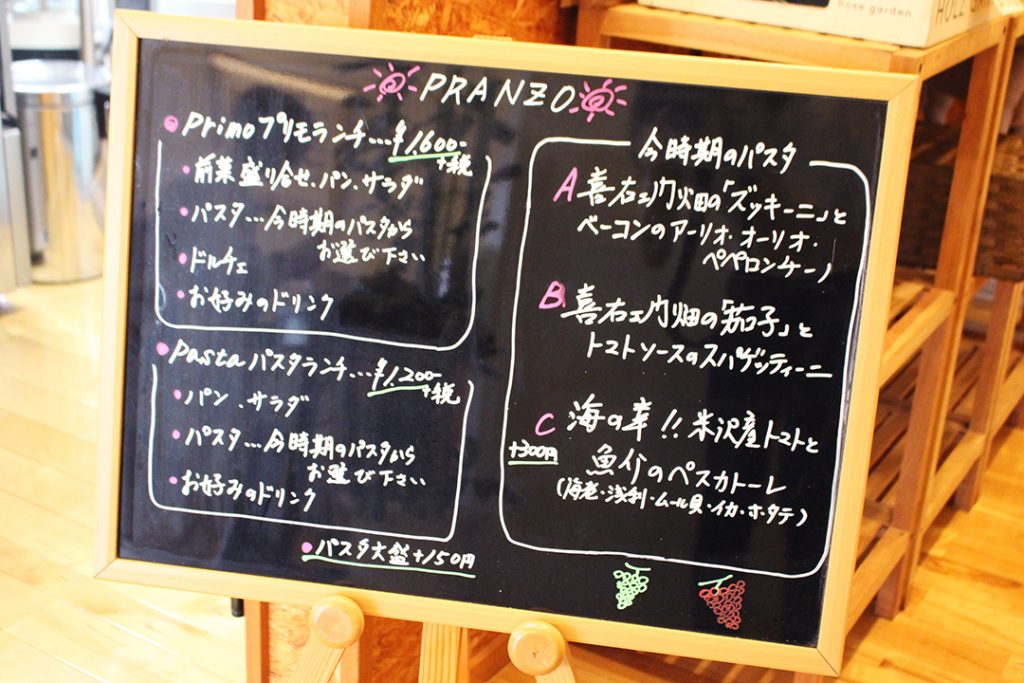 PRANZO
Primo プリモランチ…¥1,600-
+税
・前菜盛り合せ、パン、サラダ
・パスタ…今時期のパスタから
お選び下さい
・ドルチェ
・お好みのドリンク
Pasta パスタランチ…¥1,200-
+税
・パン、サラダ
・パスタ…今時期のパスタから
お選び下さい
・お好みのドリンク
・パスタ大盛+150円
今時期のパスタ
A 喜右エ門畑の「ズッキーニ」と
ベーコンのアーリオ・オーリオ・
ペペロンチーノ
B 喜右エ門畑の「茄子」と
トマトソースのスパゲッティーニ
C 海の幸!! 米沢産トマトと
+300円 魚介のペスカトーレ
(海老・浅利・ムール貝・イカ・ホタテ)
hose garden